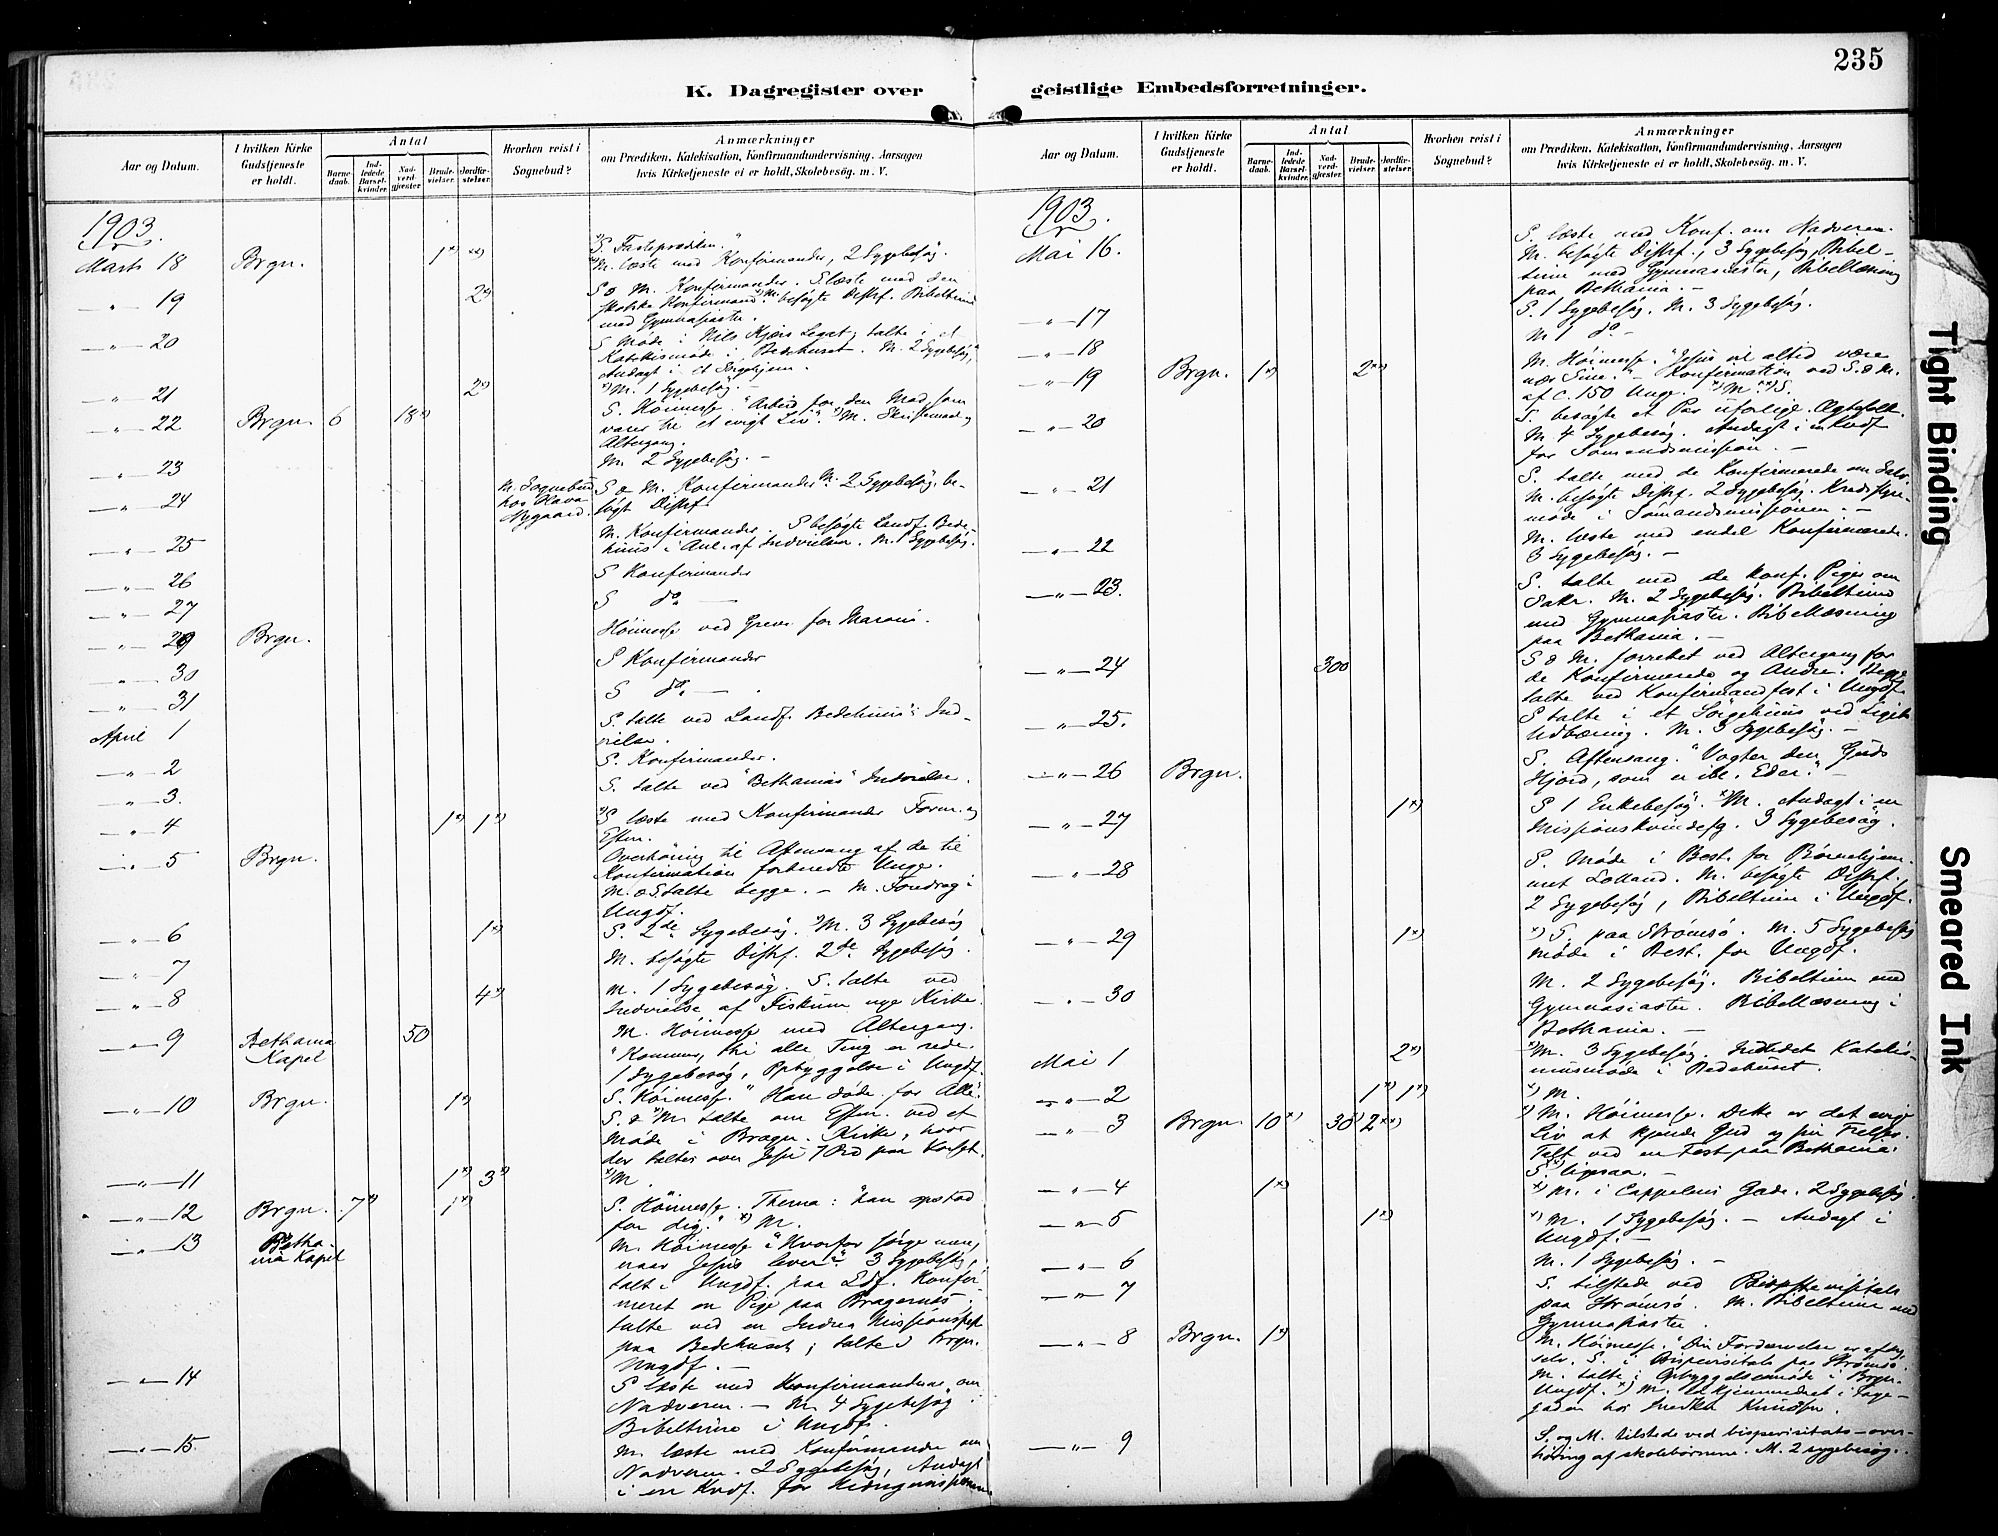 235
K. Dagregister over geistlige Embedsforretninger.
Aar og Datum.
I hvilken Kirke Gudstjeneste er holdt.
Antal
Barnedaab.
Indledede Barselkvinder.
Nadverdgjester.
Brudevielser.
Jordfæstelser.
Hvorhen reist i Sognebud?
Anmærkninger
om Prædiken, Katekisation, Konfirmandundervisning. Aarsagen
hvis Kirketjeneste ei er holdt, Skolebesøg. m. V.
1903.
Marts 18 Brgn. 1x) xx)
x) S. Fasteprædiken.
M. læste med Konfirmander, 2 Sygebesøg.
— " — 19 2x)
S & M. Konfirmander. S læste med den
Konfirmand. M. besøgte Distrf. Bibeltime
med Gymnasiaster.
— " — 20
S Møde i Nils Kjærs Legat, talte i et
Katekismøde i Bedehuset. M. 2 Sygebesøg,
Andagt i et Sørgehjem.
— " — 21 2x)
x) M. 1 Sygebesøg. —
— " — 22 Brgn. 6 18x)
S. Høimesse. "Arbeid for den Mad, som
varer til et evigt Liv". x) M. Skriftemaal og
Altergang.
— " — 23
M. 2 Sygebesøg. —
— " — 24
M. Sognebud
hos
Nygaard.
S & M. Konfirmander. M. 2 Sygebesøg, be-
søgt Distrf.
— " — 25
M. Konfirmander. S besøgte Landf. Bede-
huus i Anl. af Indvielsen. M. 1 Sygebesøg.
— " — 26
S Konfirmander
— " — 27
S do. —
— " — 29 Brgn.
Høimesse ved Greve for Maroni.
— " — 30
S Konfirmander
— " — 31
S do. — .
April 1
S. talte ved Landf. Bedehuus's Ind-
vielse.
— " — 2
S. Konfirmander.
— " — 3.
S. talte ved "Bethanias" Indvielse.
— " — 4 1x) 1x)
x) S læste med Konfirmander Form. og
Efterm.
— " — 5 Brgn.
Overhøring til Aftensang af de til
Konfirmation forberedte Unge.
M. & S talte begge. — M. Foredrag i
Ungdf.
— " — 6 1x)
S. 2de Sygebesøg. x) M. 3 Sygebesøg
— " — 7
M. besøgte Distrf. 2de Sygebesøg.
— " — 8 4x)
M. 1 Sygebesøg. S. talte ved
Indvielse af Fiskum nye Kirke.
— " — 9 Bethania Kapel 50
M. Høimesse med Altergang.
"Kommer, thi alle Ting er rede.
1 Sygebesøg, Opbyggelse i Ungdf.
— " — 10 Brgn. 1x)
S. Høimesse. "Han døde for Alle.
S. & x) M. talte om Efterm. ved et
Møde i Bragn. Kirke, hvor
der taltes over Jesu 7 Ord paa Korset.
— " — 11 1x) 3x)
x) M.
— " — 12 Brgn. 7x) 1x)
S. Høimesse. Thema: "han opstod
for dig." x) M.
— " — 13 Betha-
nia Kapel
M. Høimesse "Hvorfor sørge nu,
naar Jesus lever". 3 Sygebesøg,
talt i Ungdf. paa Edf. Konfir-
meret en Pige paa Bragernes,
talte ved en Indre Missionsfest
paa Bedehuset; talte i Brgn.
Ungdf. —
— " — 14
S læste med Konfirmanderne om
Nadveren. — M. 4 Sygebesøg.
Bibeltime i Ungdf.
— " — 15.
M. læste med Konfirmander om
Nadveren. 2 Sygebesøg, Andagt
i en Kvdf. for
Aar og Datum.
I hvilken Kirke Gudstjeneste er holdt.
Antal
Barnedaab.
Indledede Barselkvinder.
Nadverdgjester.
Brudevielser.
Jordfæstelser.
Hvorhen reist i Sognebud?
Anmærkninger
om Prædiken, Katekisation, Konfirmandundervisning. Aarsagen
hvis Kirketjeneste ei er holdt, Skolebesøg. m. V.
1903.
Mai 16.
S. læste med Konf. om Nadveren.
M. besøgte Distrf., 3 Sygebesøg, Bibel-
time med Gymnasiaster, Bibellæsning
paa Bethania. —
— " — 17
S. 1 Sygebesøg. M. 3 Sygebesøg.
— " — 18
M 1 do —
— " — 19 Brgn. 1x) 2xx)
M. Høimesse. "Jesus vil altid være
nær Sine." — Konfirmation ved S. & M.
af c. 150 Unge. x) M. xx) S.
— " — 20
S. besøgte et Par uforlige. Ægtefolk.
M. 4 Sygebesøg. Andagt i en Kvdf
for Sømandsmission. —
— " — 21
S. talte med de Konfirmerede om Sakr.
M. besøgte Distrf. 2 Sygebesøg. Kredsstyre-
møde i Sømandsmissionen. —
— " — 22
M. læste med endel Konfirmerede.
3 Sygebesøg. —
— " — 23.
S. talte med de konf. Piger om
Sakr. M. 2 Sygebesøg. Bibeltime
med Gymnasiaster. Bibellæsning
paa Bethania. —
— " — 24 300
S & M. forrettet ved Altergang for
de Konfirmerede og Andre. Begge
talte ved Konfirmandfest i Ungdf.
— " — 25.
S talte i et Sørgehuus ved Ligets
Udbæring. M. 3 Sygebesøg. —
— " — 26 Brgn.
S. Aftensang. "Vogter den Guds
Hjord, som er ibl. Eder." —
— " — 27 1x)
S 1 Enkebesøg. x) M. Andagt i en
Missionskvindefg. 3 Sygebesøg.
— " — 28
S. Møde i Best. for Børnehjem-
met Lolland. M. besøgte Distrf.
2 Sygebesøg, Bibeltime i Ungdf.
— " — 29 1x)
x) S. paa Strømsø. M. 5 Sygebesøg
møde i Best. for Ungdf.
— " — 30
M. 2 Sygebesøg. Bibeltime med
Gymnasiaster. Bibellæsning i
Bethania. —
Mai 1 2x)
x) M. 3 Sygebesøg. Indledet Katekis-
musmøde i Bedehuset.
— " — 2 1x) 1x)
x) M.
— " — 3 Brgn. 10x) 30x) 2xx)
x) M. Høimesse. Dette er det evige
Liv at kjende Gud og sin Frelser.
Talt ved en Fest paa Bethania.
S. ligesaa. —
— " — 4 1x)
x) M. i Cappelens Gade. 2 Sygebesøg.
— " — 5 1x)
x) M. 1 Sygebesøg. — Andagt i
Ungdf. —
— " — 6
M. 1 Sygebesøg. —
— " — 7
S. tilstede ved Bispevisitats
paa Strømsø. M. Bibeltime med
Gymnasiaster.
— " — 8 Brgn. 1x)
M. Høimesse. "Din Fordærvelse er af dig
selv. S. i Bispevisitats paa Strømsø.
M. talte i Opbyggelsesmøde i Brgn.
Ungdf. x) M. hjemmedøbt i
gaden hos Knudsen.
— " — 9
S. og M. tilstede ved bispevisitats-over-
høring af skolebørnene. M. 2 sygebesøg.
Tight Binding
Smeared Ink